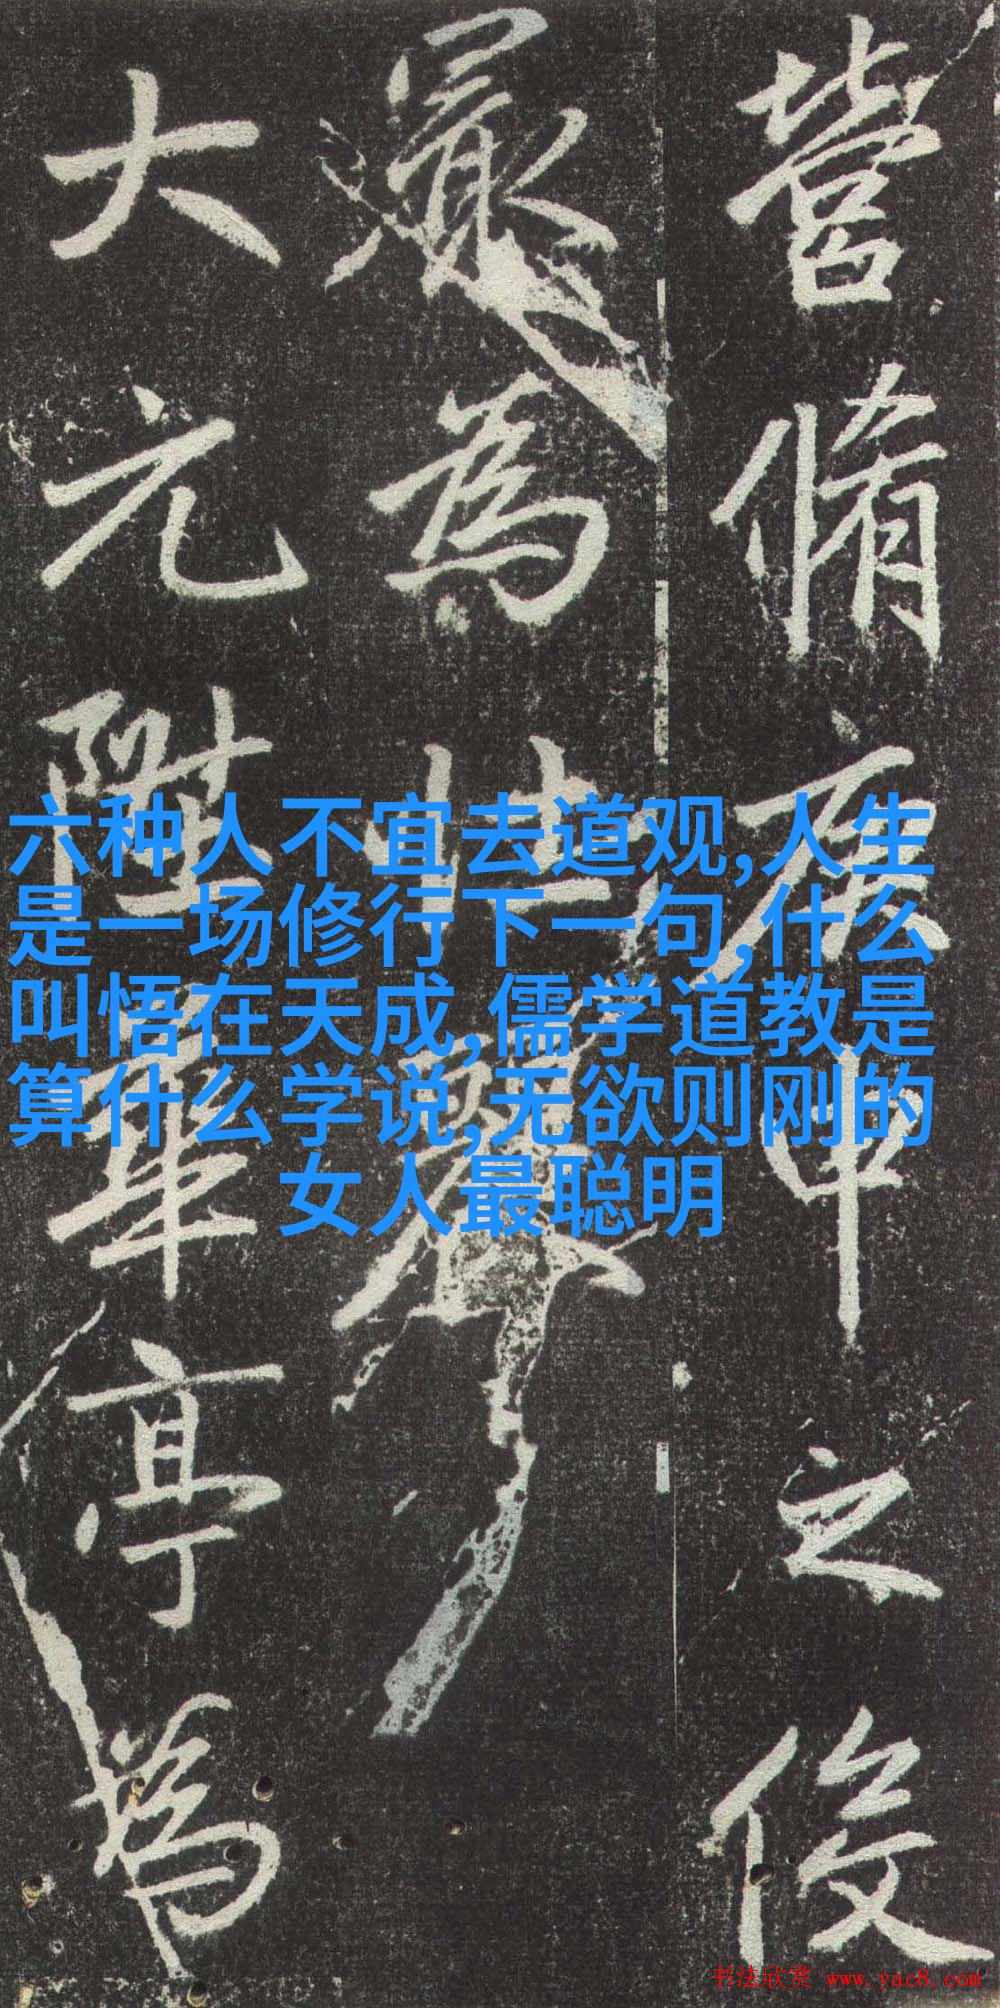 营脩庚申之後
最為壮麗
大元陞華亭為
六种人不宜去道观,人生
是一场修行下一句,什么
叫悟在天成,儒学道教是
算什么学说,无欲则刚的
女人最聪明
书法欣赏 www.yac8.com